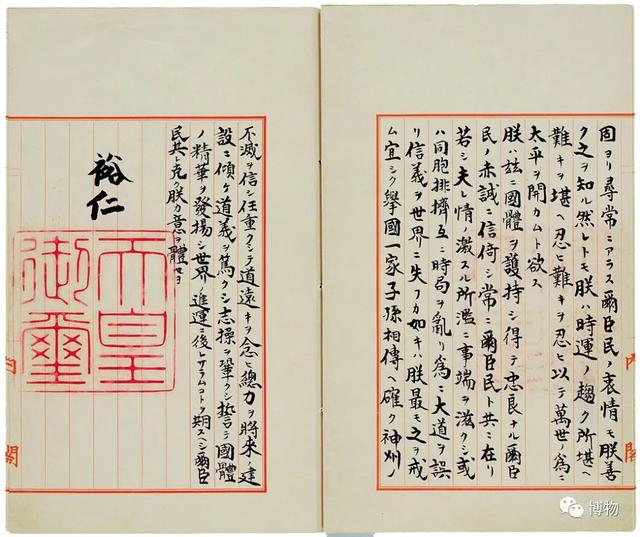 固ヨリ尋常ニアラス爾臣民ノ衷情モ朕善
ク之ヲ知ル然レトモ朕ハ時運ノ趨ク所堪ヘ
難キヲ堪ヘ忍ヒ難キヲ忍ヒ以テ萬世ノ爲ニ
太平ヲ開カムト欲ス
朕ハ茲ニ國體ヲ護持シ得テ忠良ナル爾臣
民ノ赤誠ニ信倚シ常ニ爾臣民ト共ニ在リ
若シ夫レ情ノ激スル所濫ニ事端ヲ滋クシ或
ハ同胞排擠互ニ時局ヲ亂リ爲ニ大道ヲ誤
リ信義ヲ世界ニ失フカ如キハ朕最モ之ヲ戒
ム宜シク擧國一家子孫相傳ヘ確ク神州ノ
不滅ヲ信シ任重クシテ道遠キヲ念ヒ總力ヲ將來ノ建
設ニ傾ケ道義ヲ篤クシ志操ヲ鞏クシ誓テ國體
ノ精華ヲ發揚シ世界ノ進運ニ後レサラムコトヲ期スヘシ爾臣
民其レ克ク朕カ意ヲ體セヨ
裕仁
天皇
御璽
内閣
博物